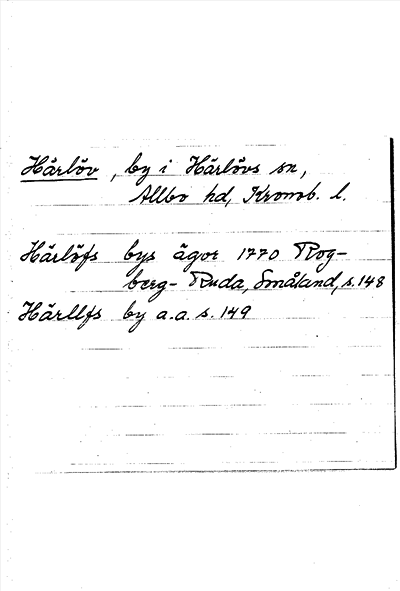 Härlöv, by i Härlövs sn,
Allbo hd, Kronob. l.
Härlöfs bys ägor 1770 Rog-
berg-Ruda, Småland, s. 148
Härllfs by a.a. s. 149